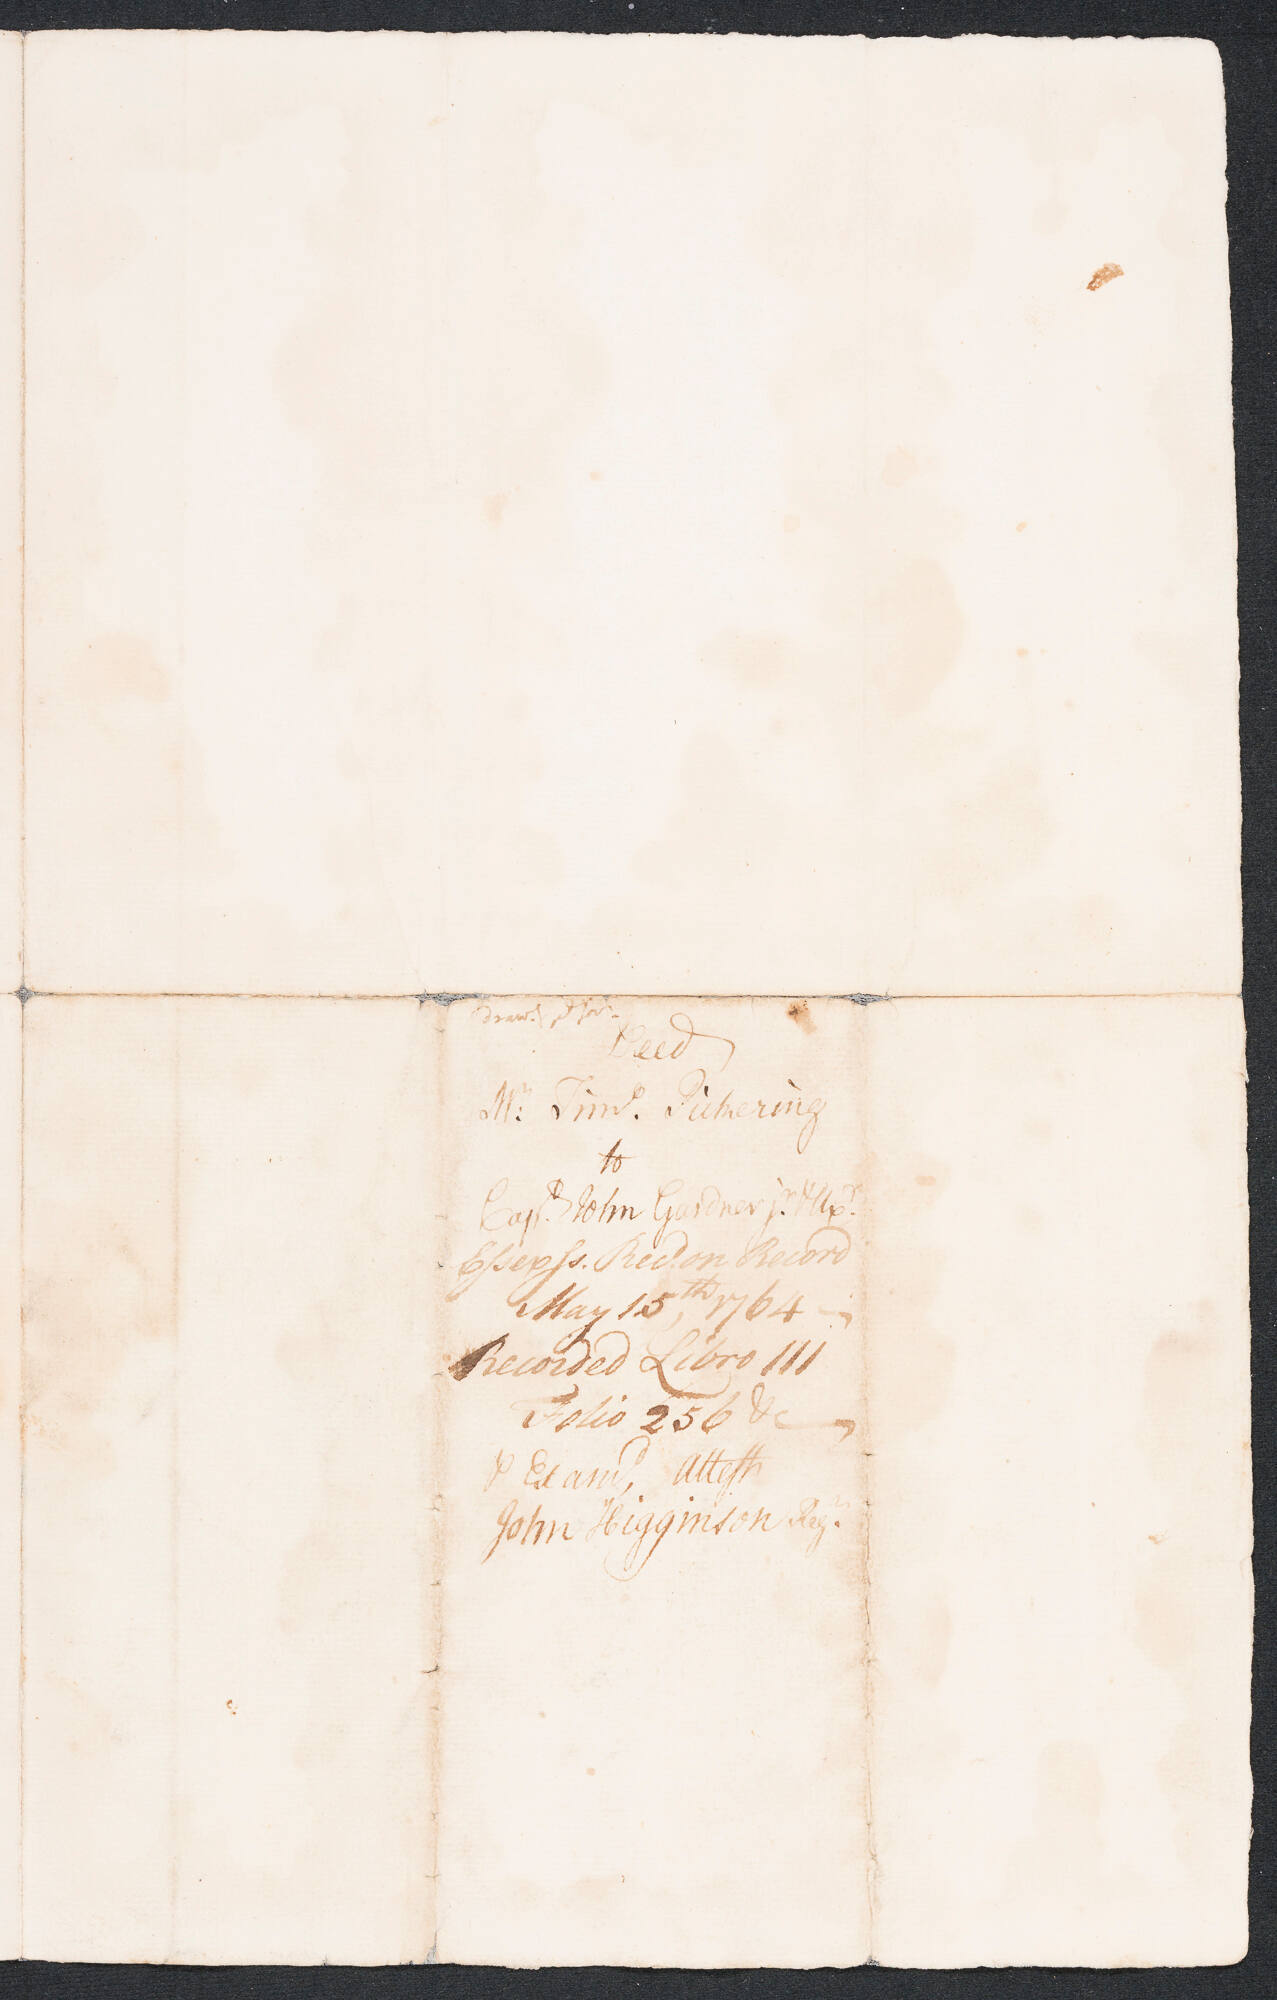 Deed
Mr. Timo. Pickering
to
Capt. John Gardner jr. & Ux.
Essex ss. Recd. on Record
May 15,th 1764
Recorded Libro 111
Folio 256 &c
P Examd, Attest
John Higginson Regr.